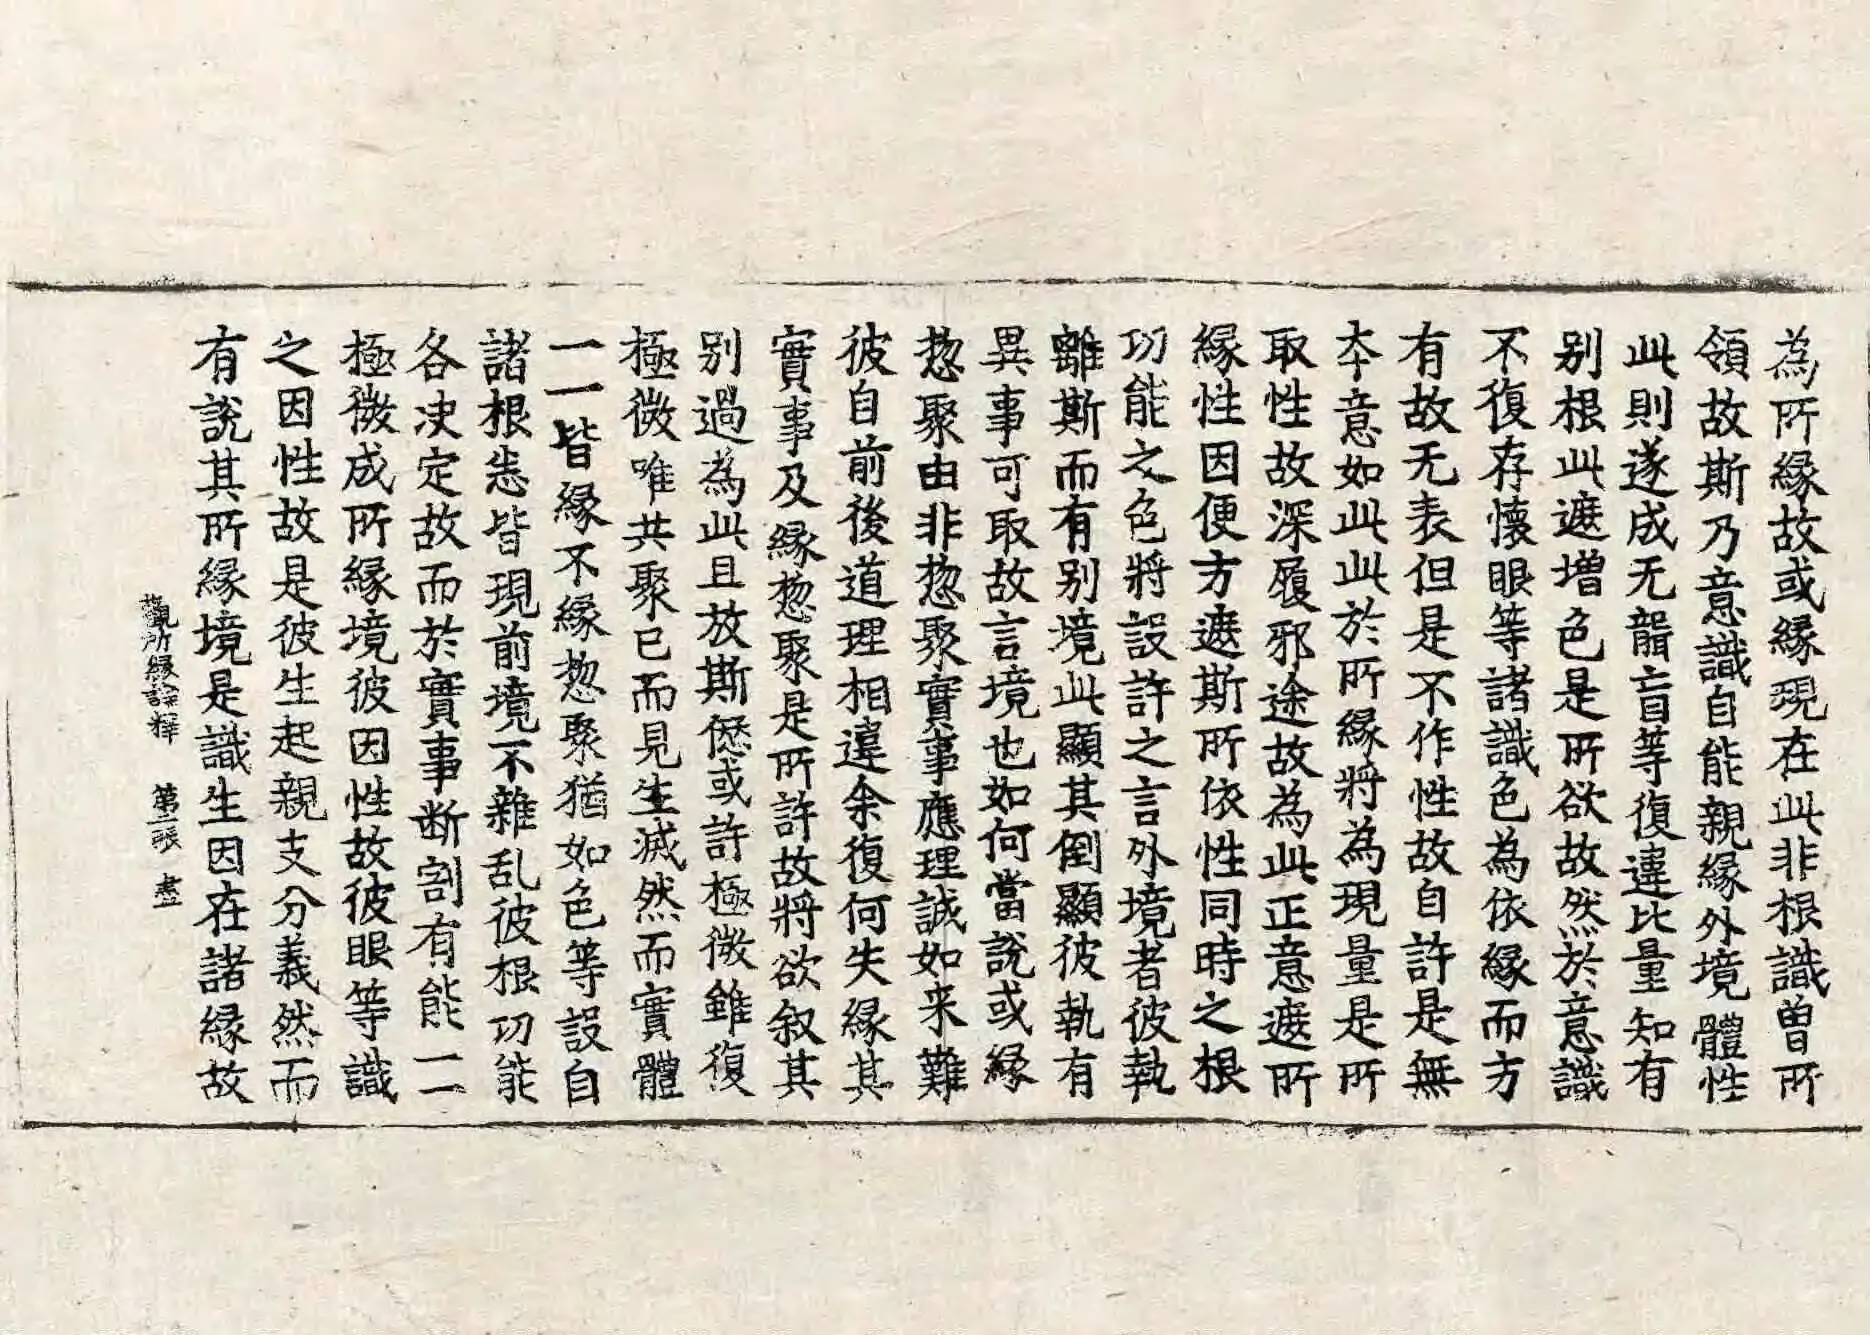 為所緣故或緣現在此非根識曾所
領故斯乃意識自能親緣外境體性
此則遂成无聾盲等復違比量知有
别根此遮增色是所欲故然於意識
不復存懷眼等諸識色為依緣而方
有故无表但是不作性故自許是無
本意如此此於所緣將為現量是所
取性故深履邪途故為此正意遮所
緣性因便方遮斯所依性同時之根
功能之色將設許之言外境者彼執
離斯而有别境此顯其倒顯彼執有
異事可取故言境也如何當說或緣
惣聚由非惣聚實事應理誠如来難
彼自前後道理相違余復何失緣其
實事及緣惣聚是所許故將欲叙其
别過為此且放斯愆或許極微雖復
極微唯共聚已而見生滅然而實體
一一皆緣不緣惣聚猶如色等設自
諸根恙皆現前境不雜乱彼根功能
各决定故而於實事断割有能一一
極微成所緣境彼因性故彼眼等識
之因性故是彼生起親支分義然而
有說其所緣境是識生因在諸緣故
觀所緣論釋 第二張 盡